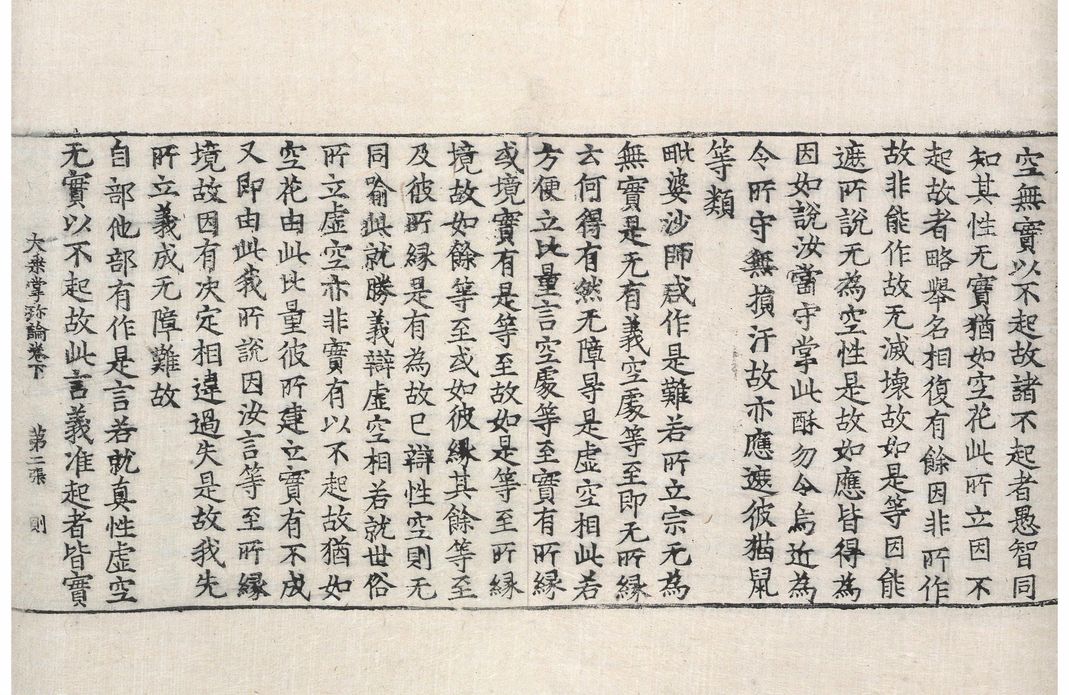 空無實以不起故諸不起者愚智同
知其性无實猶如空花此所立因不
起故者略舉名相復有餘因非所作
故非能作故无滅壞故如是等因能
遮所說无為空性是故如應皆得為
因如說汝當守掌此酥勿令烏近為
令所守無損汙故亦應遮彼猫鼠
等類
毗婆沙師咸作是難若所立宗无為
無實是无有義空處等至即无所緣
云何得有然无障㝵是虛空相此若
方便立比量言空處等至實有所緣
或境實有是等至故如是等至所緣
境故如餘等至或如彼緣其餘等至
及彼所緣是有為故已辯性空則无
同喻此就勝義辯虛空相若就世俗
所立虛空亦非實有以不起故猶如
空花由此比量彼所建立實有不成
又即由此我所說因汝言等至所緣
境故因有決定相違過失是故我先
所立義成无障難故
自部他部有作是言若就真性虛空
无實以不起故此言義准起者皆實
大乘掌珎論卷下 第二張 則